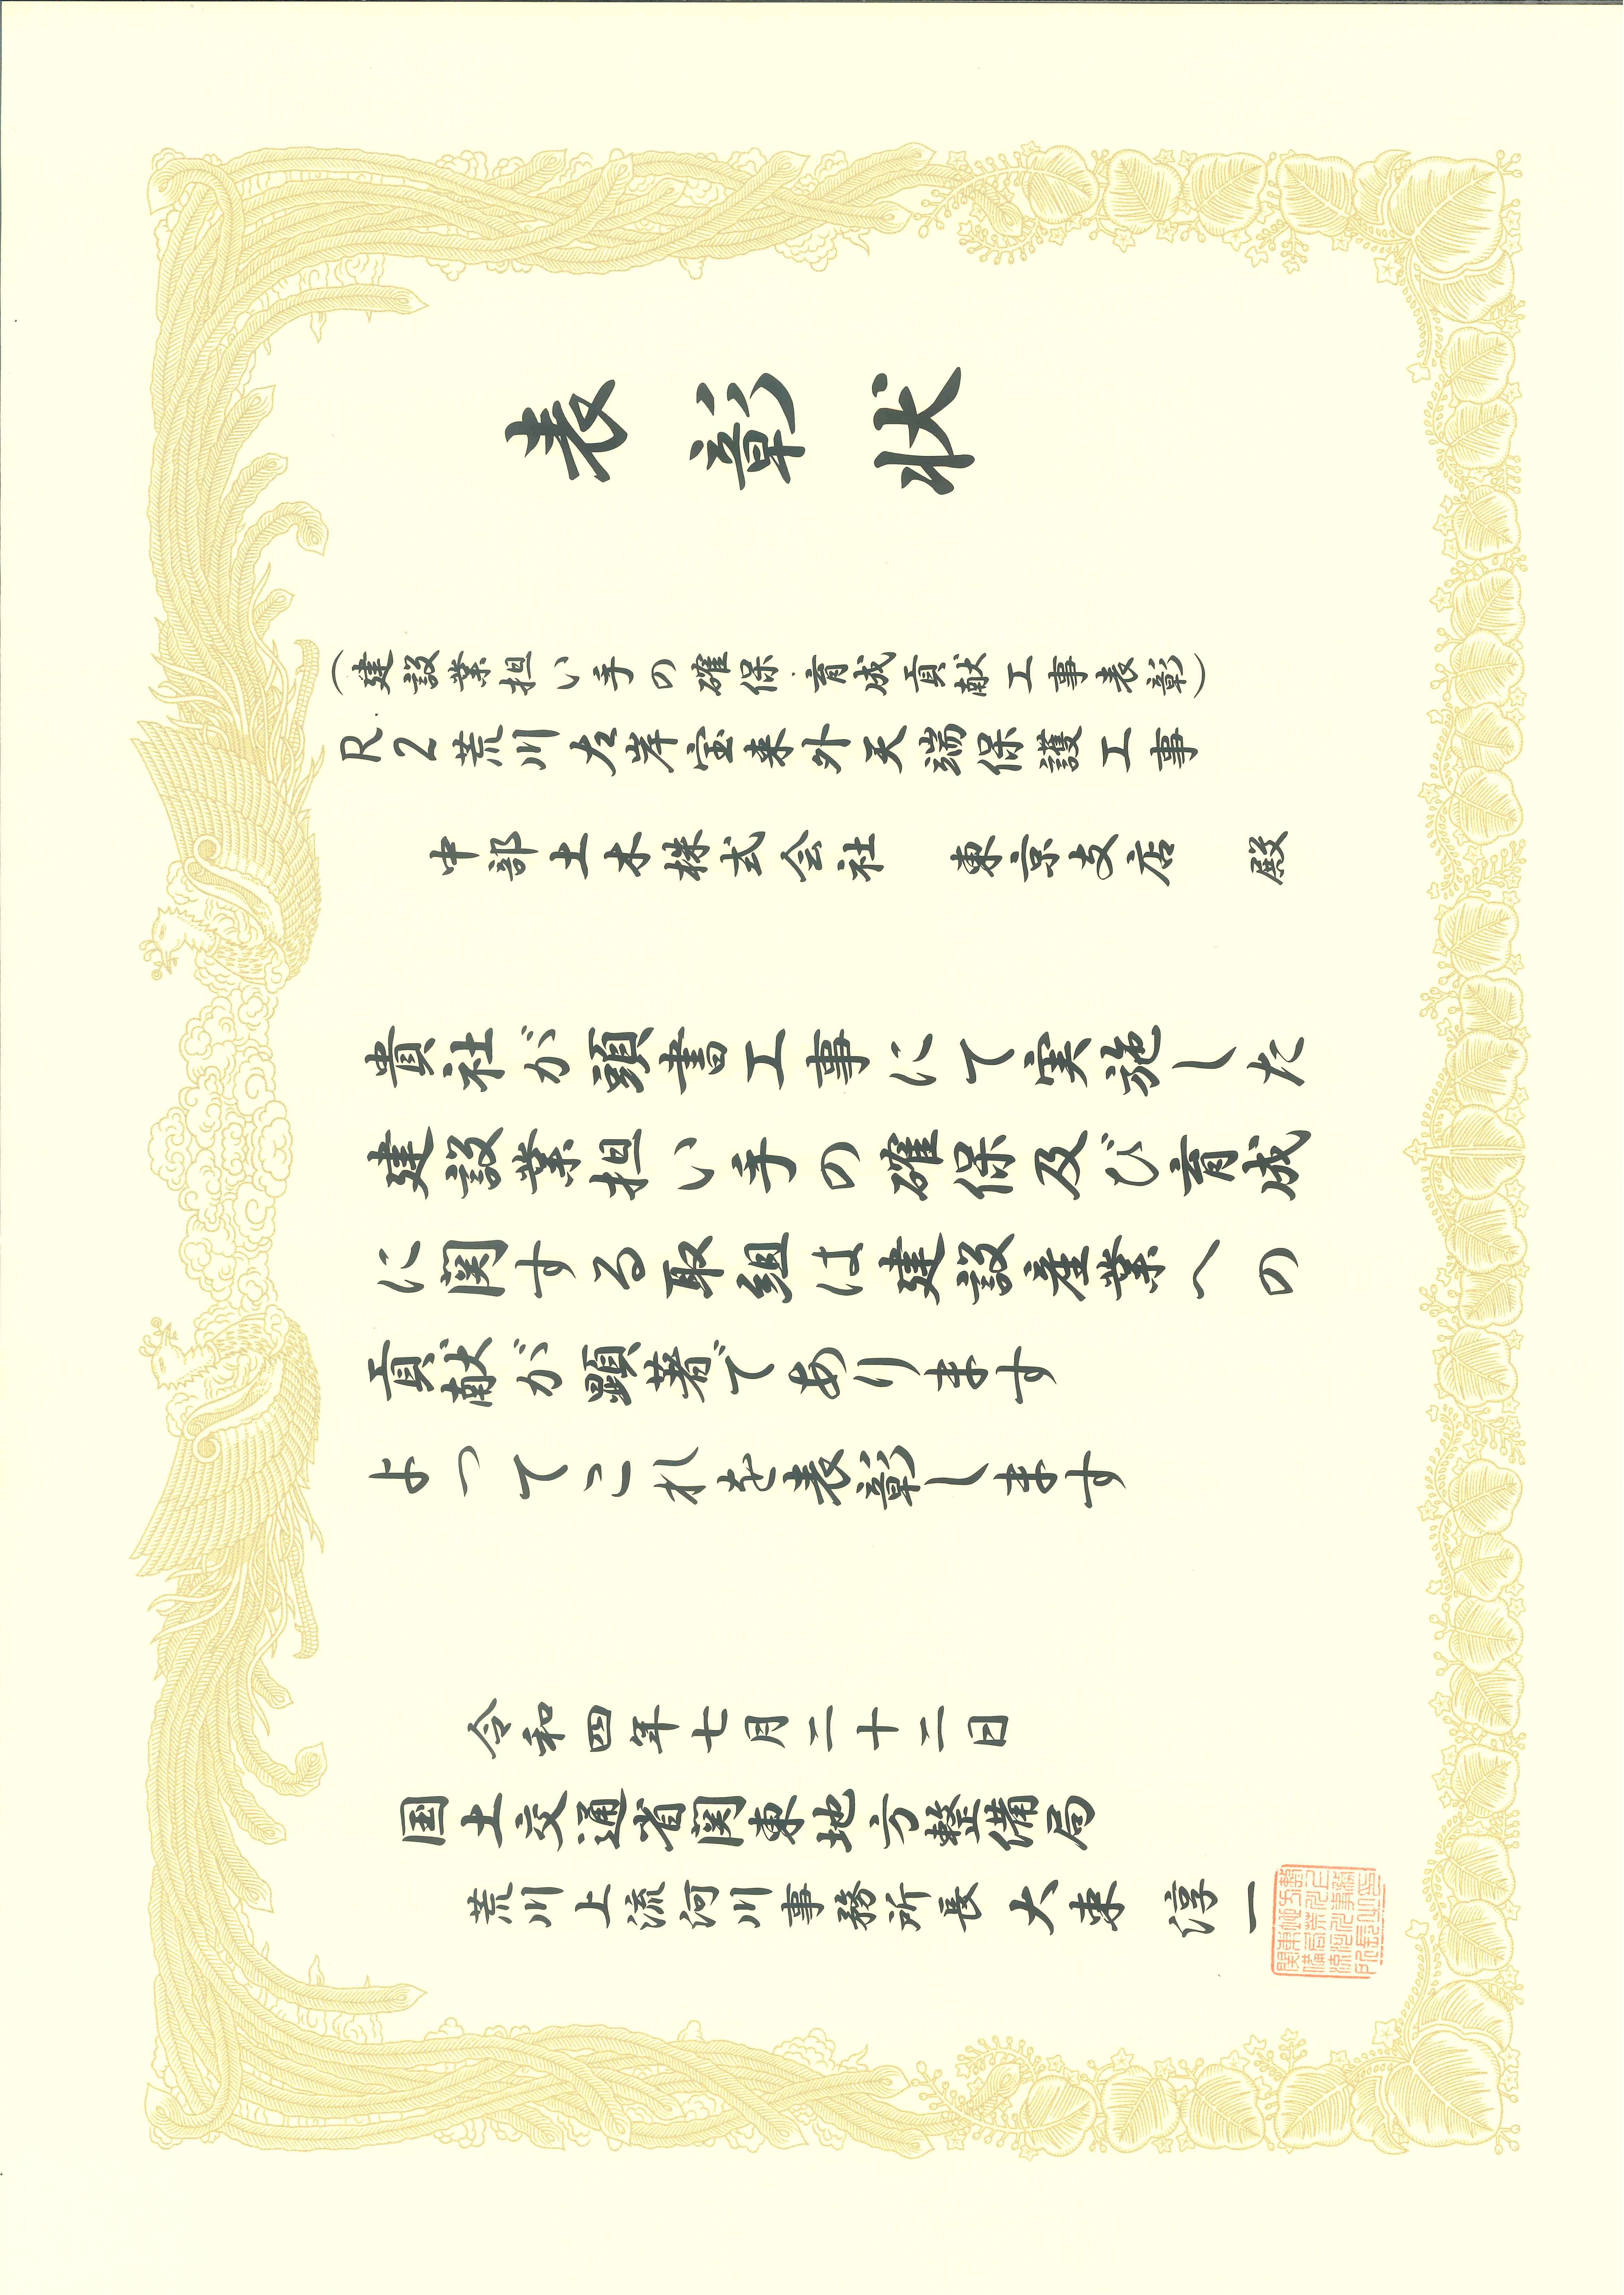 表彰状
(建設業担い手の確保・育成貢献工事表彰)
R2荒川左岸宝来外天端保護工事
中部土木株式会社　東京支店　殿
貴社が頭書工事にて実施した
建設業担い手の確保及び育成
に関する取組は建設産業への
貢献が顕著であります
よってこれを表彰します
令和四年七月二十二日
国土交通省関東地方整備局
荒川上流河川事務所長 大束 淳一